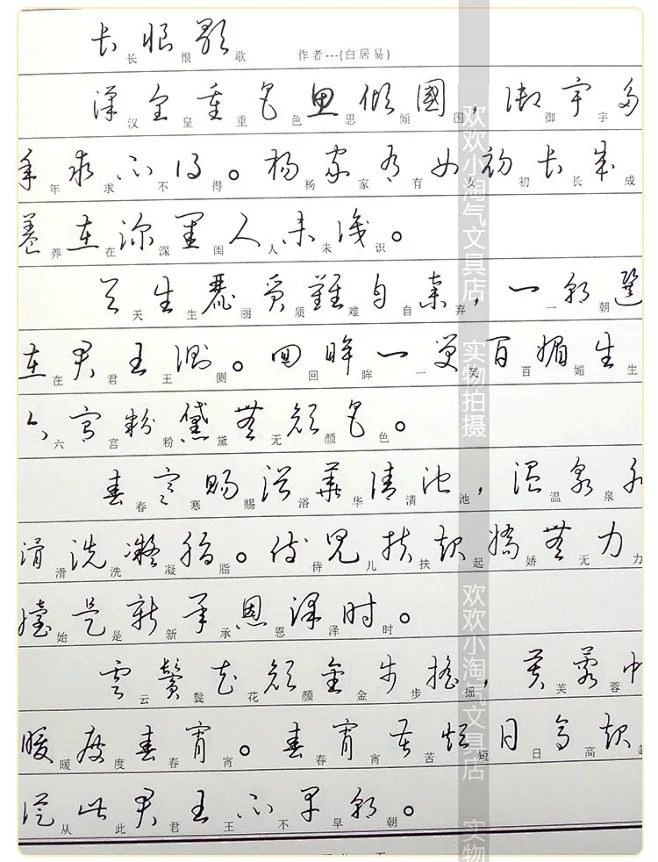 长恨歌
长恨歌 作者---(白居易)
漢皇重色思傾國，御宇多
汉皇重色思倾国御宇
年求不得。杨家有女初长成
年求不得杨家有女初长成
養在深閨人未識。
养在深闺人未识
天生麗質難自棄，一朝選
天生丽质难自弃一朝
在君王側。回眸一笑百媚生
在君王侧回眸一笑百媚生
六宮粉黛無顏色。
六宫粉黛无颜色
春寒賜浴華清池，温泉水
春寒赐浴华清池温泉
滑洗凝脂。侍兒扶起嬌無力
滑洗凝脂侍儿扶起娇无力
始是新承恩澤时。
始是新承恩泽时
雲鬢花顏金步搖，芙蓉帳
云鬓花颜金步摇芙蓉
暖度春宵。春宵苦短日高起
暖度春宵春宵苦短日高
從此君王不早朝。
从此君王不早朝
欢欢小淘气文具店 实物拍摄 欢欢小淘气文具店 实物